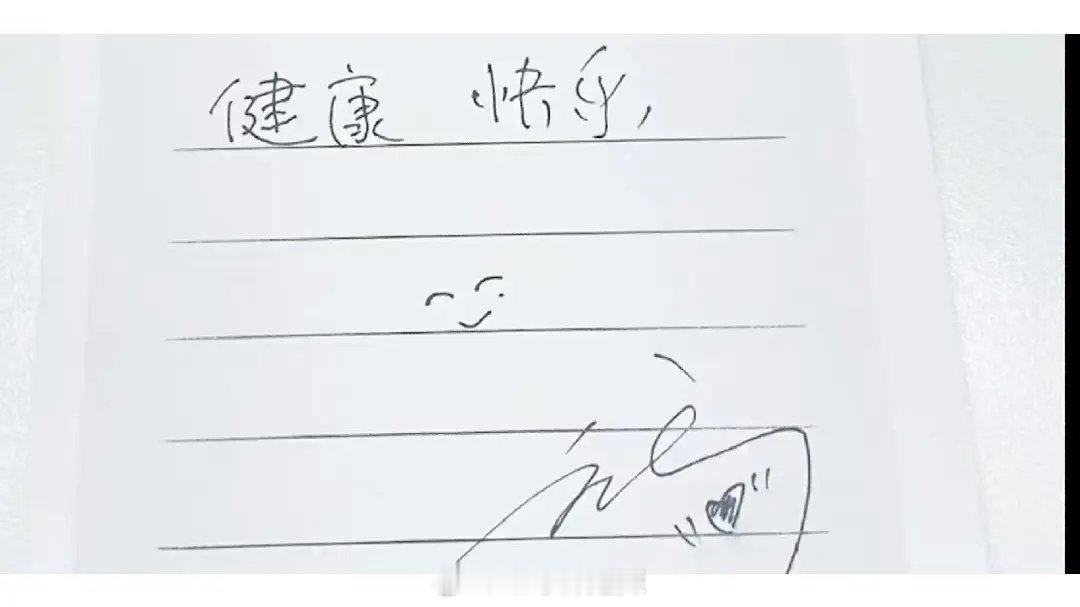 健康 快乐,